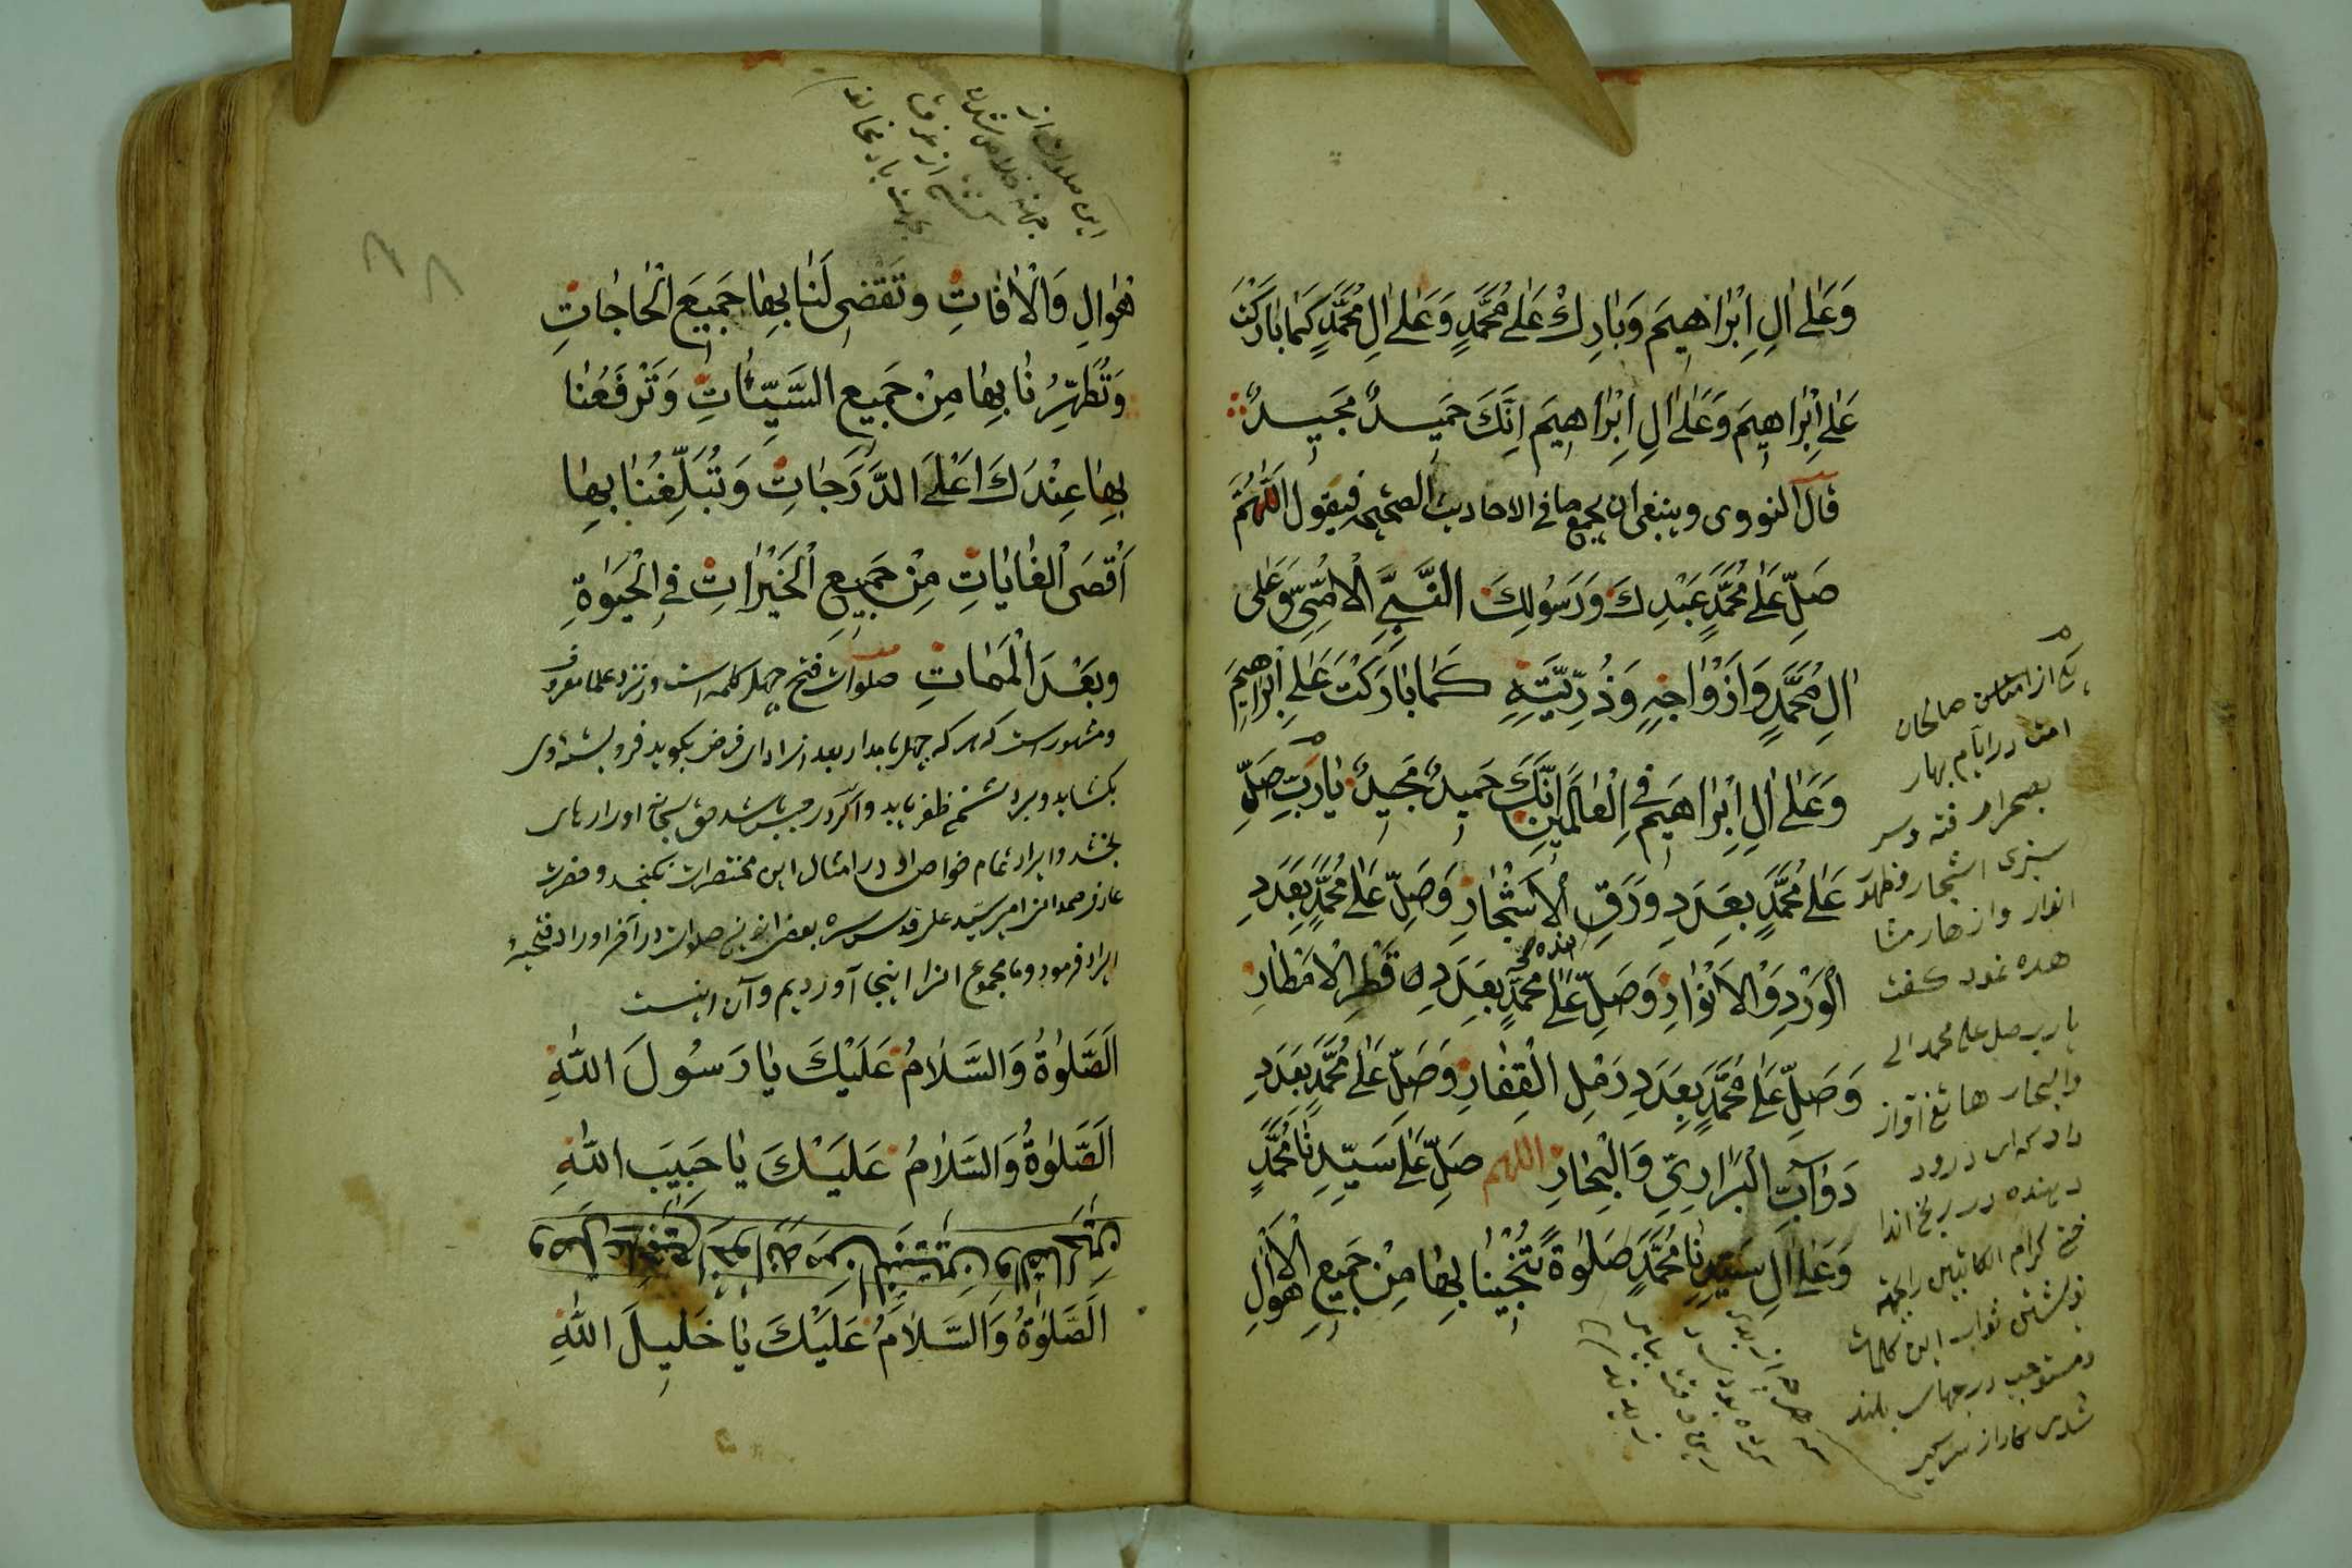 وَعَلٰى اٰلِ اِبْرٰاهيمَ وَبٰارِكْ عَلٰى مُحَمَّدٍ وَعَلٰى اٰلِ مُحَمَّدٍ كَمٰا بٰارَكْتَ
عَلٰى اِبْرٰاهيمَ وَعَلٰى اٰلِ اِبْرٰاهيمَ اِنَّكَ حَميدٌ مَجيدٌ
قال النووى وينبغى ان يجمع ما فى الاحاديث الصحيحه فيقول اَللّٰهُمَّ
صَلِّ عَلٰى مُحَمَّدٍ عَبْدِكَ وَرَسُولِكَ النَّبِىِّ الْاُمِّىِّ وَعَلٰى
اٰلِ مُحَمَّدٍ وَاَزْوٰاجِهٖ وَذُرِّيَّتِهٖ كَمٰا بٰارَكْتَ عَلٰى اِبْرٰهيمَ
وَعَلٰى اٰلِ اِبْرٰاهيمَ فِى الْعٰالَمينَ اِنَّكَ حَميدٌ مَجيدٌ يٰا رَبِّ صَلِّ
عَلٰى مُحَمَّدٍ بِعَدَدِ وَرَقِ الْاَشْجٰارِ وَصَلِّ عَلٰى مُحَمَّدٍ بِعَدَدِ
الْوَرْدِ وَالْاَنْوٰارِ وَصَلِّ عَلٰى مُحَمَّدٍ بِعَدَدِ قَطْرِ الْاَمْطٰارِ
وَصَلِّ عَلٰى مُحَمَّدٍ بِعَدَدِ رَمْلِ الْقِفٰارِ وَصَلِّ عَلٰى مُحَمَّدٍ بِعَدَدِ
دَوٰابِّ الْبَرٰارِىِّ وَالْبِحٰارِ اللهم صَلِّ عَلٰى سَيِّدِنٰا مُحَمَّدٍ
وَعَلٰى اٰلِ سَيِّدِنٰا مُحَمَّدٍ صَلٰوةً تُنْجينٰا بِهٰا مِنْ جَميعِ الْاَهْوٰالِ
يكى از صالحان
امت در ايام بهار
بصحرا رفته وسر
سبزى اشجار وظهور
انوار وازهار مشا
هده نمود گفت
يا رب صل على محمد الى
والبحار هاتفى آواز
داد كه اى درود
دهنده در رنج اندا
ختى كرام الكاتبين را بجهة
نوشتن ثواب اين كلمات
ومستوجب درجهاى بلند
شدى كار از سر گير
هْوٰالِ وَالْاٰفٰاتِ وَتَقْضى لَنٰا بِهٰا جَميعَ الْحٰاجٰاتِ
وَتُطَهِّرُنٰا بِهٰا مِنْ جَميعِ السَّيِّئٰاتِ وَتَرْفَعُنٰا
بِهٰا عِنْدَكَ اَعْلَى الدَّرَجٰاتِ وَتُبَلِّغُنٰا بِهٰا
اَقْصَى الْغٰايٰاتِ مِنْ جَميعِ الْخَيْرٰاتِ فِى الْحَيٰوةِ
وَبَعْدَ الْمَمٰاتِ صلوات فتح چهل كلمه است ونزد علما معروف
ومشهور است كه هر كه چهل بامداد بعد از اداى فرض بگويد فرو بسته وى
بگشايد وبر دشمن ظفر يابد واگر در حبس باشد حق سبحانه او را رهاى
بخشد وايراد تمام خواص او در امثال اين مختصرات نگنجد وحضرت
عارف صمدانى امير سيد على قدس سره بعضى از اين صلوات در آخر اوراد فتحيه
ايراد فرمود وما مجموع آنرا اينجا آورديم وآن اينست
اَلصَّلٰوةُ وَالسَّلٰامُ عَلَيْكَ يٰا رَسُولَ اللّٰهِ
اَلصَّلٰوةُ وَالسَّلٰامُ عَلَيْكَ يٰا حَبيبَ اللّٰهِ
اَلصَّلٰوةُ وَالسَّلٰامُ عَلَيْكَ يٰا خَليلَ اللّٰهِ